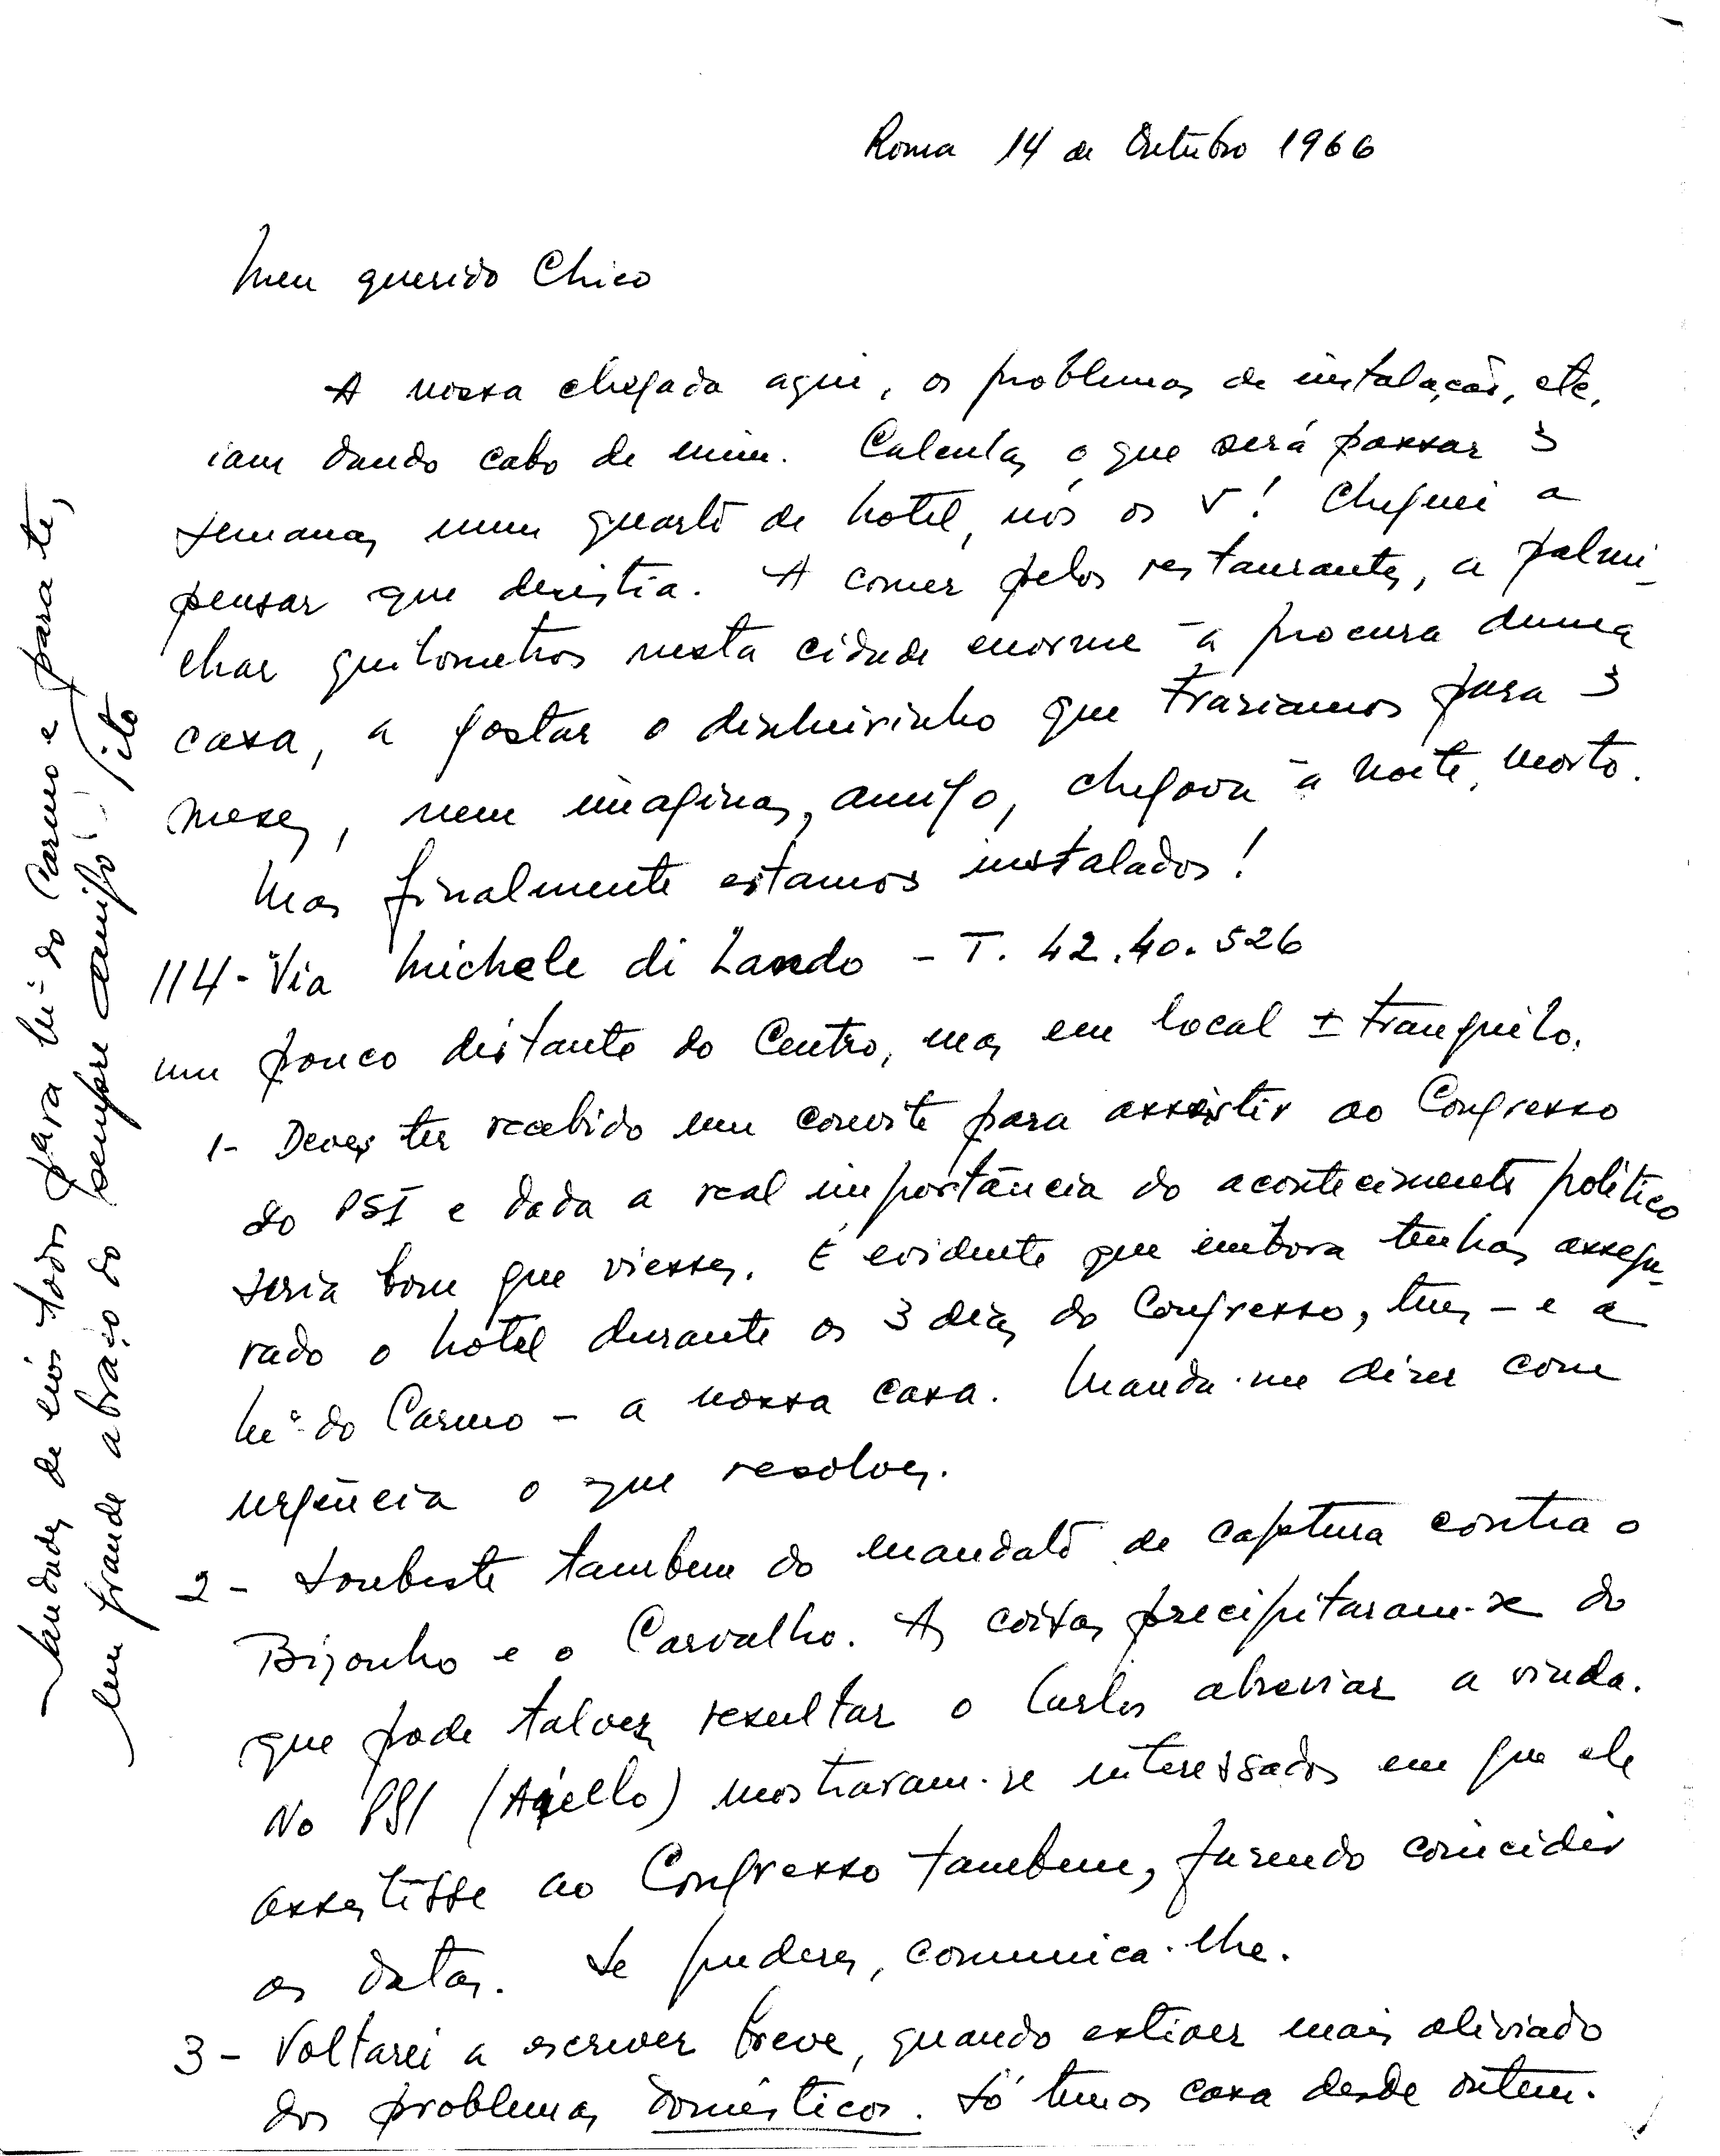 Roma 14 de Outubro 1966
Meu querido Chico
A nossa chegada aqui, os problemas de instalação, etc,
iam dando cabo de mim. Calculas o que será passar 3
semanas num quarto de hotel, nós os 5! Cheguei a
pensar que desistia. A comer pelos restaurantes, a palmi-
lhar quilometros nesta cidade enorme à procura duma
casa, a gastar o dinheirinho que traziamos para 3
meses, nem imaginas, amigo, chegava à noite, morto.
Mas finalmente estamos instalados!
114 - Via Michele di Lando - T. 42.40.526
um pouco distante do Centro, mas em local ± tranquilo.
1- Deves ter recebido um convite para assistir ao Congresso
do PSI e dada a real importância do acontecimento político
seria bom que viesses. É evidente que embora tenhas assegu-
rado o hotel durante os 3 dias do Congresso, tens - e a
Mª do Carmo - a nossa casa. Manda-me dizer com
urgência o que resolves.
2 - Soubeste tambem do mandato de captura contra o
Bizonho e o Carvalho. As coisas precipitaram-se do
que pode talvez resultar o Carlos abreviar a vinda.
No PSI (Aiello) mostraram-se interessados em que ele
assistisse ao Congresso tambem, fazendo coincidir
as datas. Se puderes, comunica-lhe.
3 - Voltarei a escrever breve, quando estiver mais aliviado
dos problemas domésticos. Só temos casa desde ontem.
Saudades de nós todos para Mª do Carmo e para ti,
um grande abraço do sempre amigo Tito